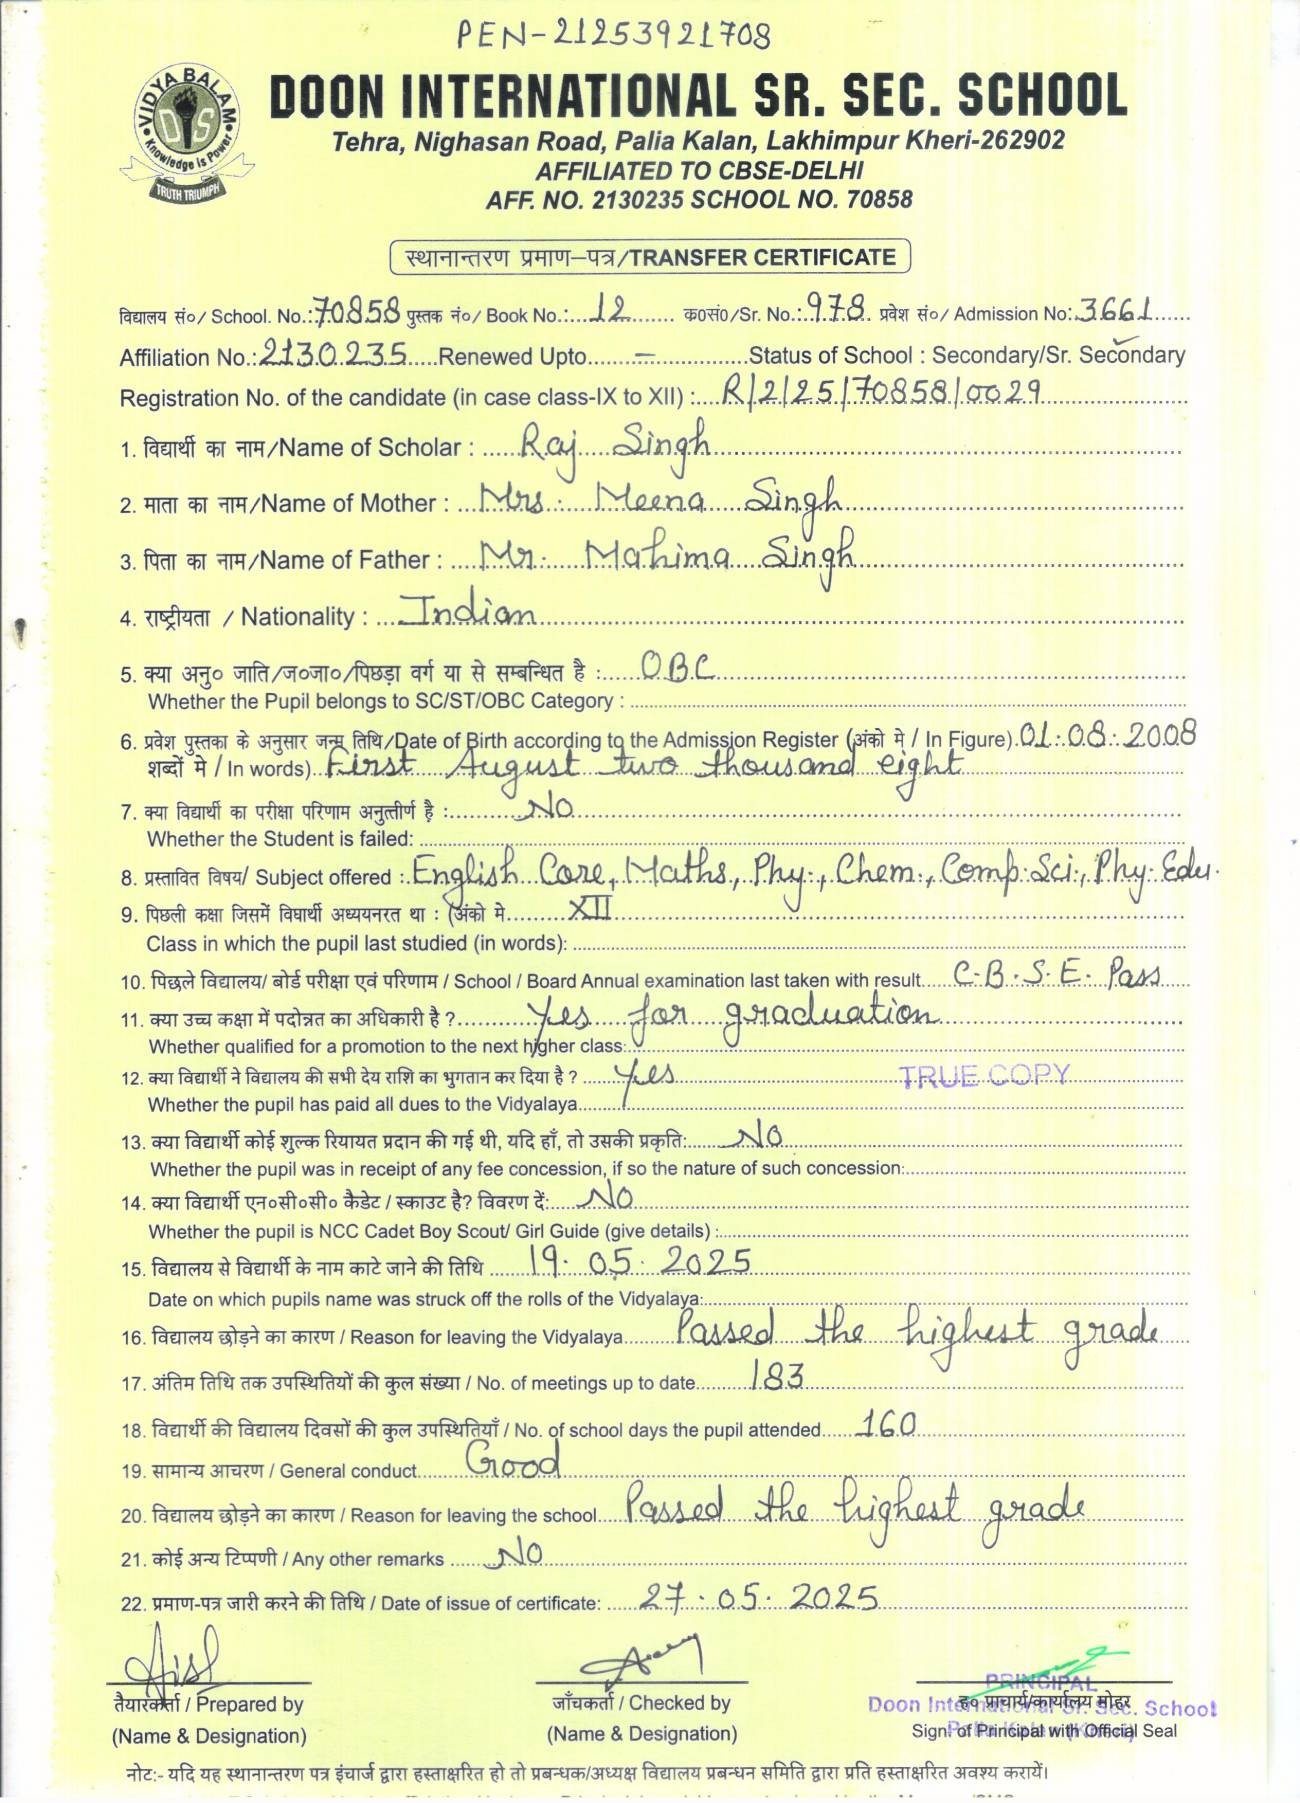 PEN-21253921708
VIDYA BALAM
DIS
Knowledge is Power
TRUTH TRIUMPH
DOON INTERNATIONAL SR. SEC. SCHOOL
Tehra, Nighasan Road, Palia Kalan, Lakhimpur Kheri-262902
AFFILIATED TO CBSE-DELHI
AFF. NO. 2130235 SCHOOL NO. 70858
स्थानान्तरण प्रमाण–पत्र/TRANSFER CERTIFICATE
विद्यालय सं०/ School. No.: 70858 पुस्तक नं०/ Book No.: 12 क०सं०/Sr. No.: 978 प्रवेश सं०/ Admission No: 3661
Affiliation No.: 2130235 Renewed Upto — Status of School : Secondary/Sr. Secondary
Registration No. of the candidate (in case class-IX to XII) : R/2/25/70858/0029
1. विद्यार्थी का नाम/Name of Scholar : Raj Singh
2. माता का नाम/Name of Mother : Mrs. Meena Singh
3. पिता का नाम/Name of Father : Mr. Mahima Singh
4. राष्ट्रीयता / Nationality : Indian
5. क्या अनु० जाति/ज०जा०/पिछड़ा वर्ग या से सम्बन्धित है : OBC
Whether the Pupil belongs to SC/ST/OBC Category :
6. प्रवेश पुस्तका के अनुसार जन्म तिथि/Date of Birth according to the Admission Register (अंको मे / In Figure). 01.08.2008
शब्दों मे / In words) First August two thousand eight
7. क्या विद्यार्थी का परीक्षा परिणाम अनुत्तीर्ण है : No
Whether the Student is failed:
8. प्रस्तावित विषय/ Subject offered : English Core, Maths, Phy., Chem., Comp. Sci., Phy. Edu.
9. पिछली कक्षा जिसमें विघार्थी अध्ययनरत था : (अंको मे XII
Class in which the pupil last studied (in words):
10. पिछले विद्यालय/ बोर्ड परीक्षा एवं परिणाम / School / Board Annual examination last taken with result C.B.S.E. Pass
11. क्या उच्च कक्षा में पदोन्नत का अधिकारी है ? Yes for graduation
Whether qualified for a promotion to the next higher class:
12. क्या विद्यार्थी ने विद्यालय की सभी देय राशि का भुगतान कर दिया है ? Yes TRUE COPY
Whether the pupil has paid all dues to the Vidyalaya
13. क्या विद्यार्थी कोई शुल्क रियायत प्रदान की गई थी, यदि हाँ, तो उसकी प्रकृति: No
Whether the pupil was in receipt of any fee concession, if so the nature of such concession:
14. क्या विद्यार्थी एन०सी०सी० कैडेट / स्काउट है? विवरण दें: No
Whether the pupil is NCC Cadet Boy Scout/ Girl Guide (give details) :
15. विद्यालय से विद्यार्थी के नाम काटे जाने की तिथि 19.05.2025
Date on which pupils name was struck off the rolls of the Vidyalaya:
16. विद्यालय छोड़ने का कारण / Reason for leaving the Vidyalaya Passed the highest grade
17. अंतिम तिथि तक उपस्थितियों की कुल संख्या / No. of meetings up to date 183
18. विद्यार्थी की विद्यालय दिवसों की कुल उपस्थितियाँ / No. of school days the pupil attended 160
19. सामान्य आचरण / General conduct Good
20. विद्यालय छोड़ने का कारण / Reason for leaving the school Passed the highest grade
21. कोई अन्य टिप्पणी / Any other remarks No
22. प्रमाण-पत्र जारी करने की तिथि / Date of issue of certificate: 27.05.2025
PRINCIPAL
तैयारकर्ता / Prepared by जाँचकर्ता / Checked by ह० प्राचार्य/कार्यालय मोहर
Doon International Sr. Sec. School
(Name & Designation) (Name & Designation) Sign. of Principal with Official Seal
नोट:- यदि यह स्थानान्तरण पत्र इंचार्ज द्वारा हस्ताक्षरित हो तो प्रबन्धक/अध्यक्ष विद्यालय प्रबन्धन समिति द्वारा प्रति हस्ताक्षरित अवश्य करायें।